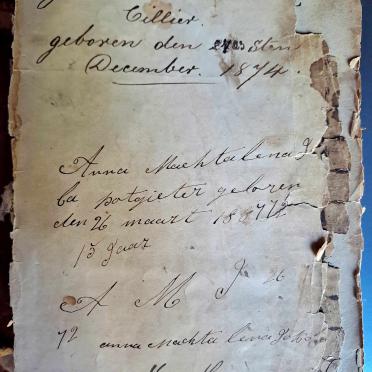 Cillier.
geboren den sten
December. 1874.
Anna Machtalena J
ba potgieter geboren
den 26 maart 18
15 Jaar
A M J 26
72 anna Machta lena